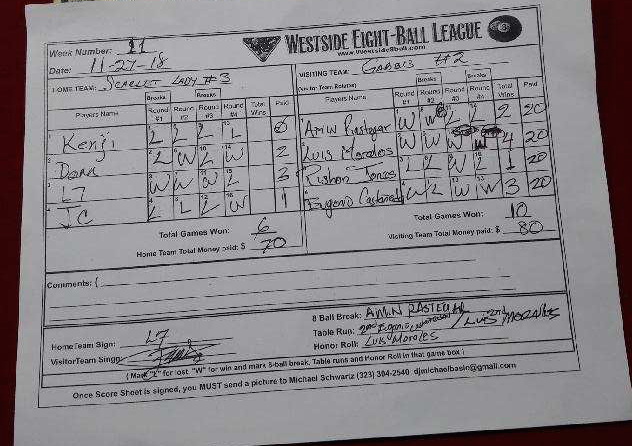 WESTSIDE EIGHT-BALL LEAGUE
www.Westside8ball.com
Week Number: 11
Date: 11-27-18
HOME TEAM: SCARLET LADY #3
VISITING TEAM: #2
Breaks Breaks
Players Name Round #1 Round #2 Round #3 Round #4 Total Wins Paid
Kenji L L L L 0
L W L W 2
L7 W W W L 3
JC L L L W 1
Total Games Won: 6
Home Team Total Money paid: $ 70
Breaks Breaks
Players Name Round #1 Round #2 Round #3 Round #4 Total Wins Paid
AMIN W W L L 2 20
Luis Morales W W W W 4 20
L L W L 1 20
Eugenio W L W W 3 20
Total Games Won: 10
Visiting Team Total Money paid: $ 80
Comments: (
HomeTeam Sign: L7
VisitorTeam Sign:
8 Ball Break: AMIN
Table Run: 2nd / 2nd LUIS MORALES
Honor Roll: Luis Morales
( Mark "L" for lost "W" for win and mark 8-ball break, Table runs and Honor Roll in that game box )
Once Score Sheet is signed, you MUST send a picture to Michael Schwartz (323) 304-2540 djmichaelbasic@gmail.com